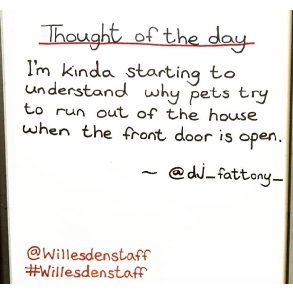 Thought of the day
I'm kinda starting to
understand why pets try
to run out of the house
when the front door is open.
~ @dj_fattony_
@Willesdenstaff
#Willesdenstaff